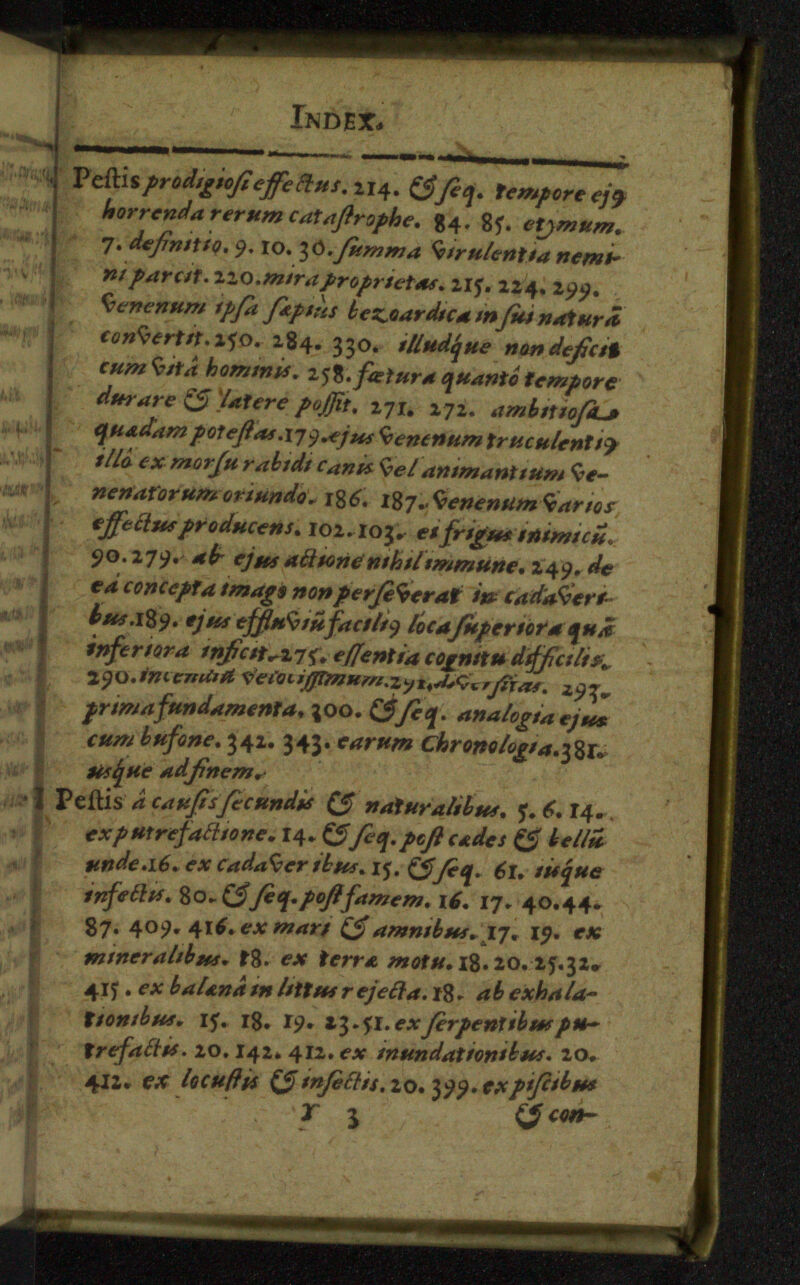 INDEX.
Peſtis prodigioſi effectus. 214. & ſeq. tempore ejꝰ
horrenda rerum cataſtrophe. 84. 85. etymum.
7. definitio. 9. 10. 36. ſumma virulentia nemi-
ni parcit. 220. mira proprietas. 215. 224. 299.
venenum ipſa ſæpiùs bezoardica in ſui naturã
convertit. 250. 284. 330. illudque non deficit
cum vitâ hominis. 258. fætura quantò tempore
durare & latere poſſit. 271. 272. ambitioſa
quadam poteſtas. 179. ejus venenum truculentiꝰ
illo ex morſu rabidi canis vel animantium ve-
nenatorum oriundo. 186. 187. venenum varios
effectus producens. 102. 103. ei frigus inimicũ.
90. 279. ab ejus actione nihil immune. 249. de
eâ concepta imago non perſeverat in cadaveri-
bus. 189. ejus effluviũ faciliꝰ loca ſuperiora quã
inferiora inficit. 275. eſſentia cognitu difficilis.
290. velociſſimum. 291.
prima fundamenta. 300. & ſeq. analogia ejus
cum bufone. 342. 343. earum Chronologia. 381.
usque ad finem.
Peſtis à cauſis ſecundis & naturalibus. 5. 6. 14.
ex putrefactione. 14. & ſeq. poſt cædes & bellũ
unde. 16. ex cadaveribus. 15. & ſeq. 61. iisque
infectis. 80. & ſeq. poſt famem. 16. 17. 40. 44.
87. 409. 416. ex mari & amnibus. 17. 19. ex
mineralibus. 18. ex terræ motu. 18. 20. 25. 32.
415. ex balænâ in littus rejecta. 18. ab exhala-
tionibus. 15. 18. 19. 23. 51. ex ſerpentibus pu-
trefactis. 20. 142. 412. ex inundationibus. 20.
412. ex locuſtis & infectis. 20. 399. ex piſcibus
T 3 & con-